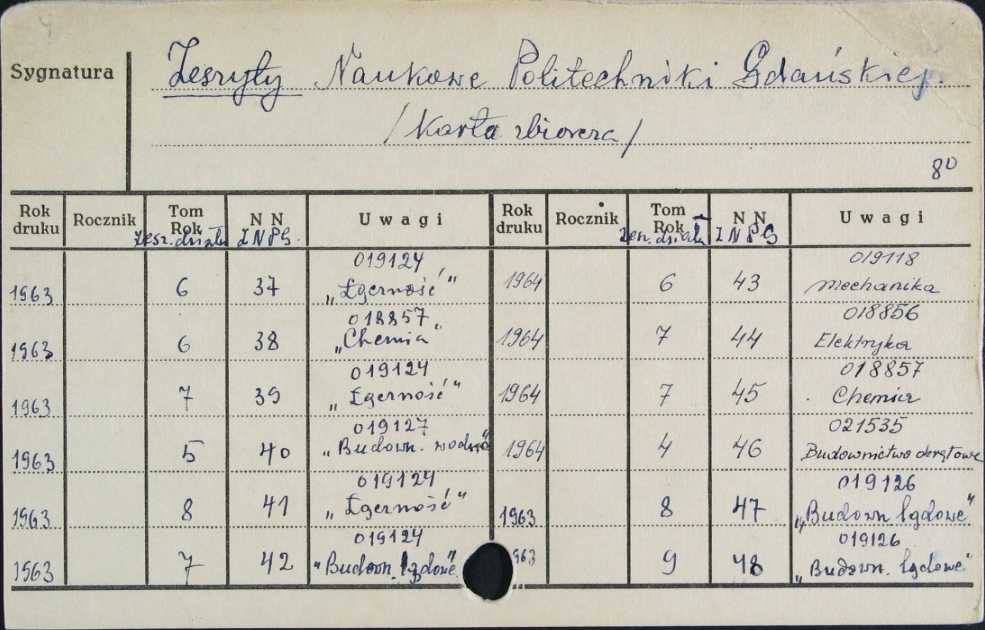 Sygnatura
Zeszyty Naukowe Politechniki Gdańskiej.
/Karta zbiorcza/
8⁰
Rok druku Rocznik Tom Rok N N U w a g i Rok druku Rocznik Tom Rok N N U w a g i
Zesz. działu ZNPG. Zesz. działu ZNPG
019124 019118
1963 6 37 „Łączność” 1964 6 43 Mechanika
018857 018856
1963 6 38 „Chemia” 1964 7 44 Elektryka
019124 018857
1963 7 39 „Łączność” 1964 7 45 Chemia
019127 021535
1963 5 40 „Budown. wodne” 1964 4 46 Budownictwo okrętowe
019124 019126
1963 8 41 „Łączność” 1963 8 47 „Budown lądowe”
019124 019126
1963 7 42 „Budown. lądowe” 963 9 48 „Budown. lądowe”